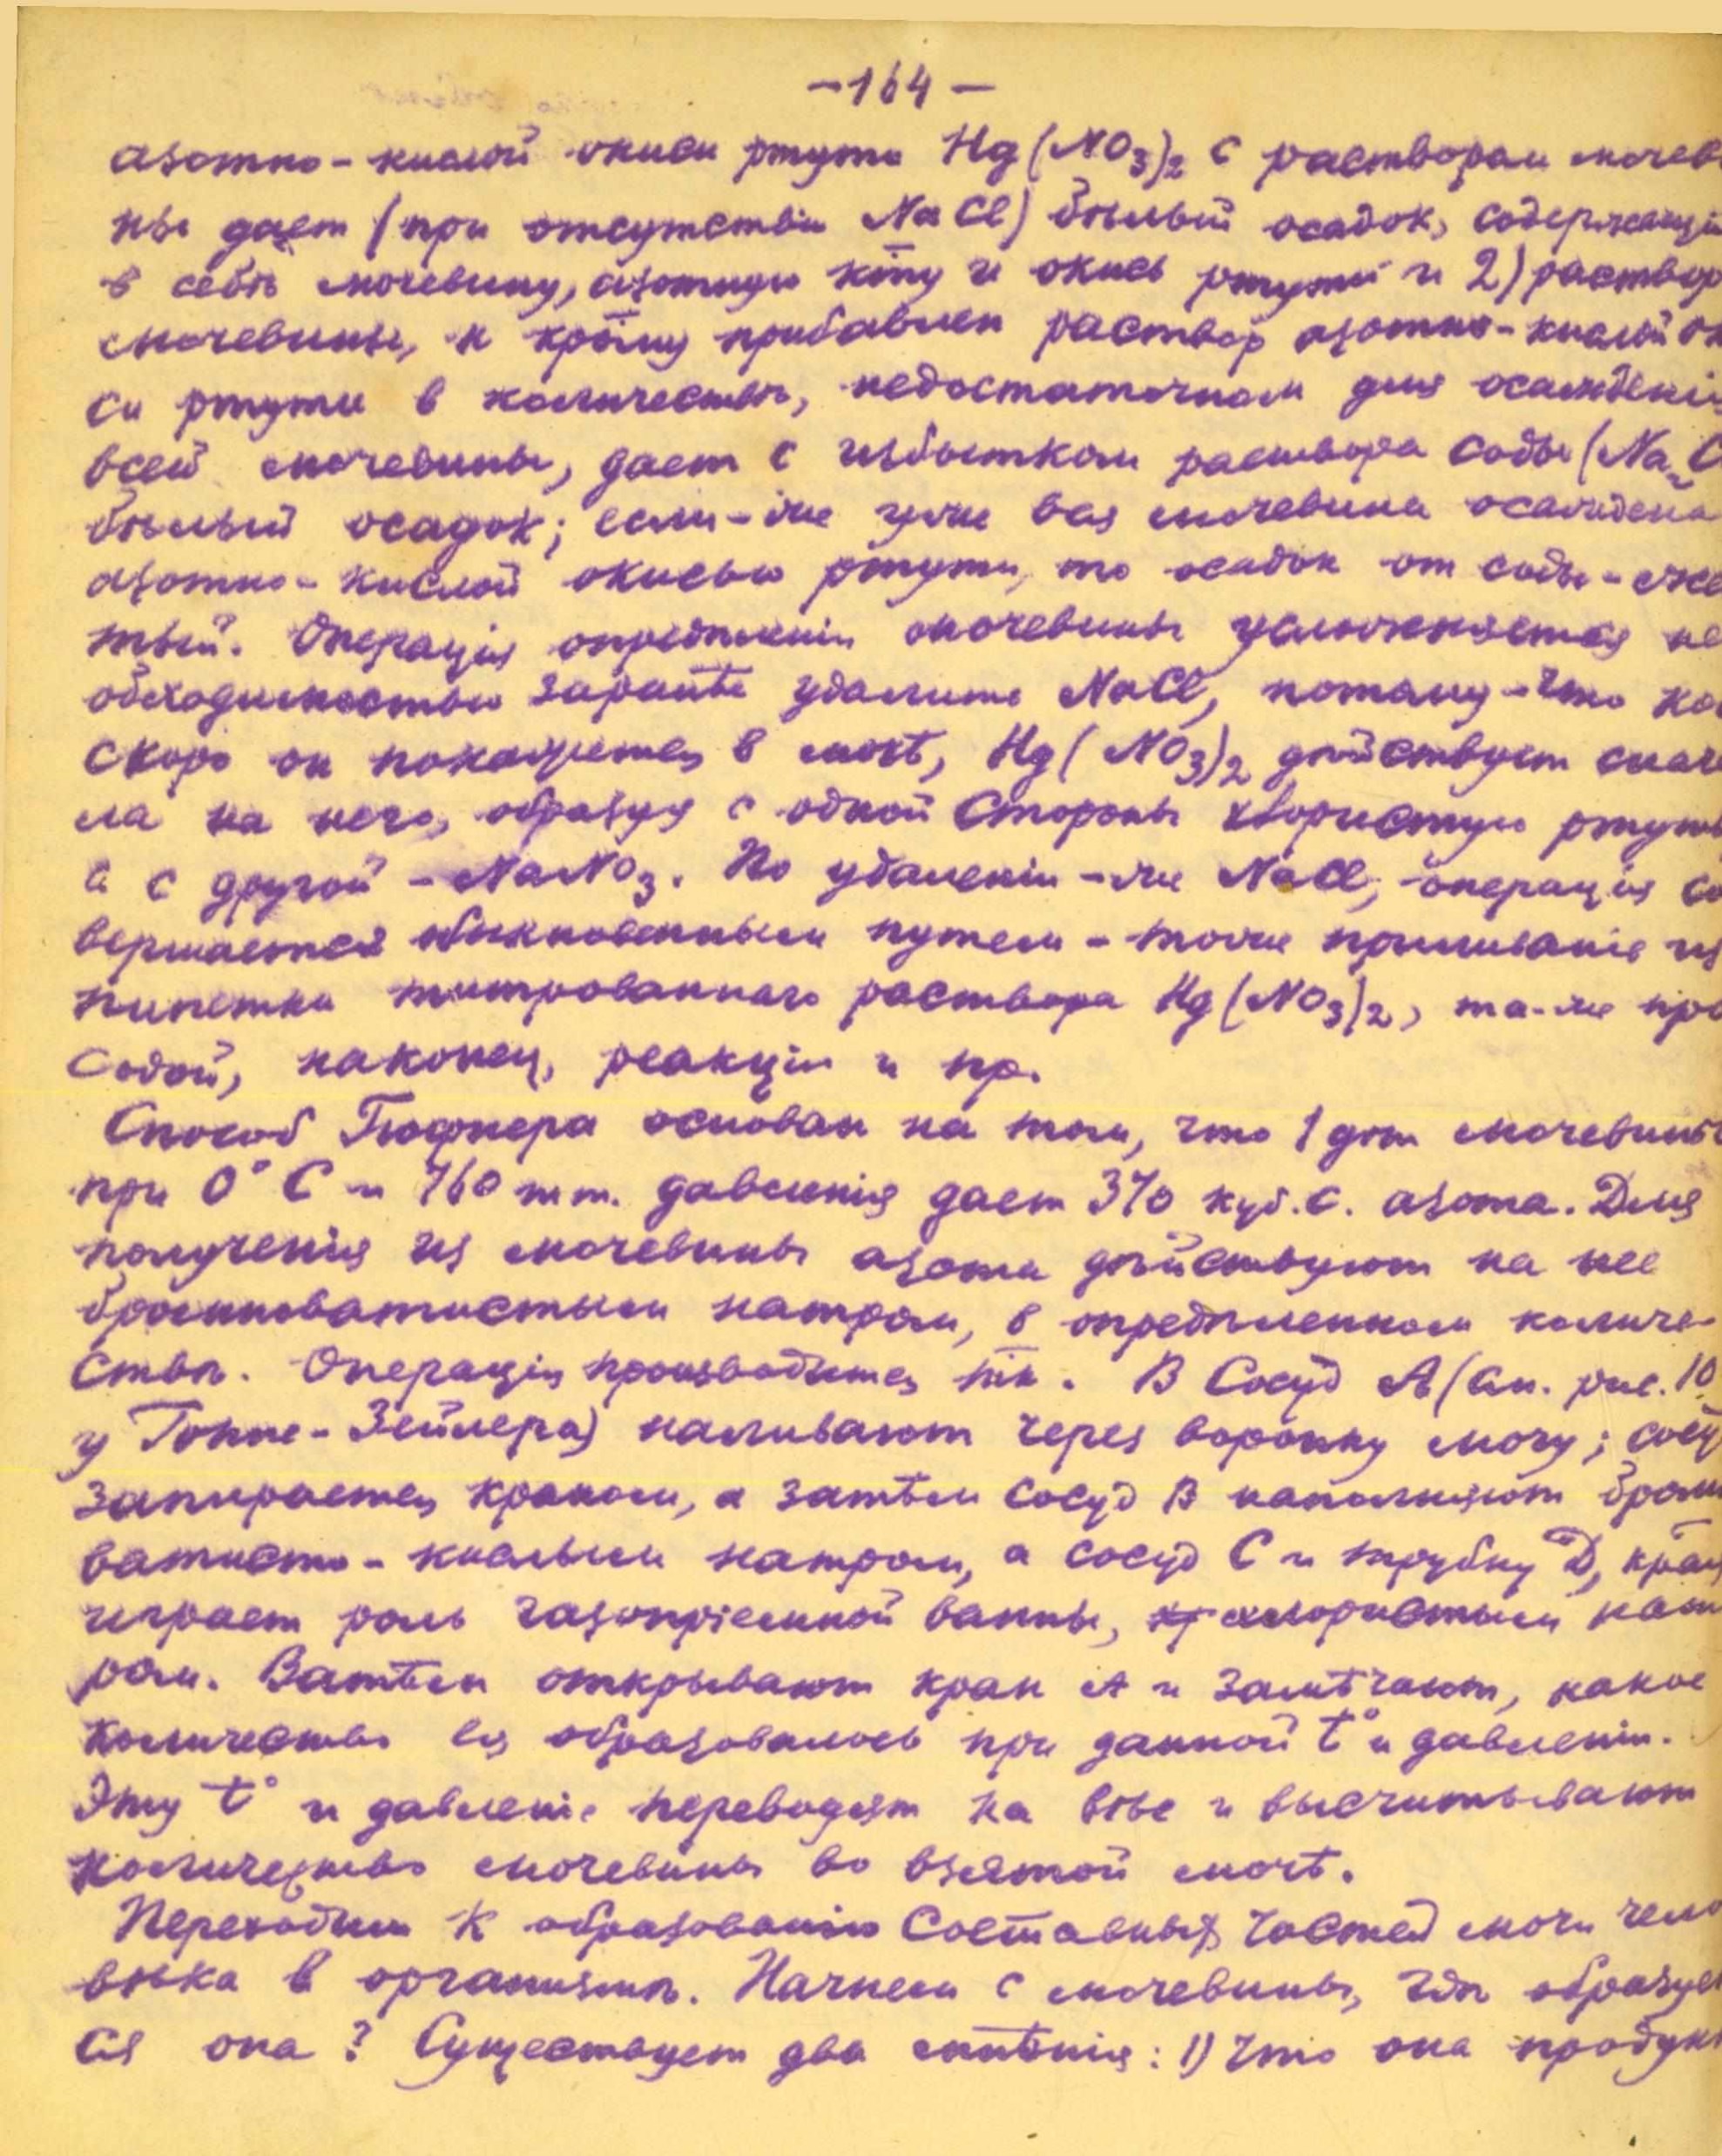 -164-
азотно-кислой окиси ртути Hg(NO3)2 с раствором мочеви
ны дает (при отсутствіи NaCl) бѣлый осадок, содержащій
в себѣ мочевину, азотную к̄ту и окись ртути и 2) раствор
мочевины, к кр̄ому прибавлен раствор азотно-кислой ок
си ртути в количествѣ, недостаточном для осажденія
всей мочевины, дает с избытком раствора соды (Na2C
бѣлый осадок; если-же уже вся мочевина осаждена
азотно-кислой окисью ртути, то осадок от соды - жел
тый. Операція опредѣленія мочевины усложняется не
обходимостью заранѣе удалить NaCl, потому-что как
скоро он покажется в мочѣ, Hg(NO3)2 дѣйствует снача
ла на него, образуя с одной стороны хлористую ртуть
а с другой - NaNO3. По удаленіи-же NaCl, операція со
вершается обыкновенным путем - то-же приливаніе из
пипетки титрованнаго раствора Hg(NO3)2, та-же проб
содой, наконец, реакціи и пр.
Способ Гюфнера основан на том, что 1 gm мочевины
при 0° C и 760 mm. давленія дает 370 куб. с. азота. Для
полученія из мочевины азота дѣйствуют на нее
бромноватистым натром, в опредѣленном количе-
ствѣ. Операція производится т̄к. В сосуд А (см. рис. 10
у Гоппе-Зейлера) наливают через воронку мочу; сосуд
запирается краном, а затѣм сосуд В наполняют бромн
ватисто-кислым натром, а сосуд С и трубку D, кр̄ая
играет роль газопріемной ванны, хлористым нат
ром. Затѣм открывают кран А и замѣчают, какое
количество ея образовалось при данной t° и давленіи.
Эту t° и давленіе переводят на вѣс и высчитывают
количество мочевины во взятой мочѣ.
Переходим к образованію составных частей мочи чело
вѣка в организмѣ. Начнем с мочевины, гдѣ образует
ся она? Существует два мнѣнія: 1) что она продукт